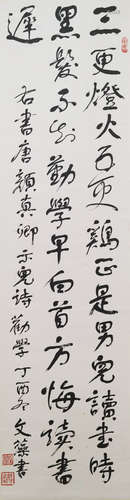 三更燈火五更雞正是男兒讀書時
黑髮不知勤學早白首方悔讀書
遲
右書唐顏真卿示兒詩勸學丁酉冬文藻書